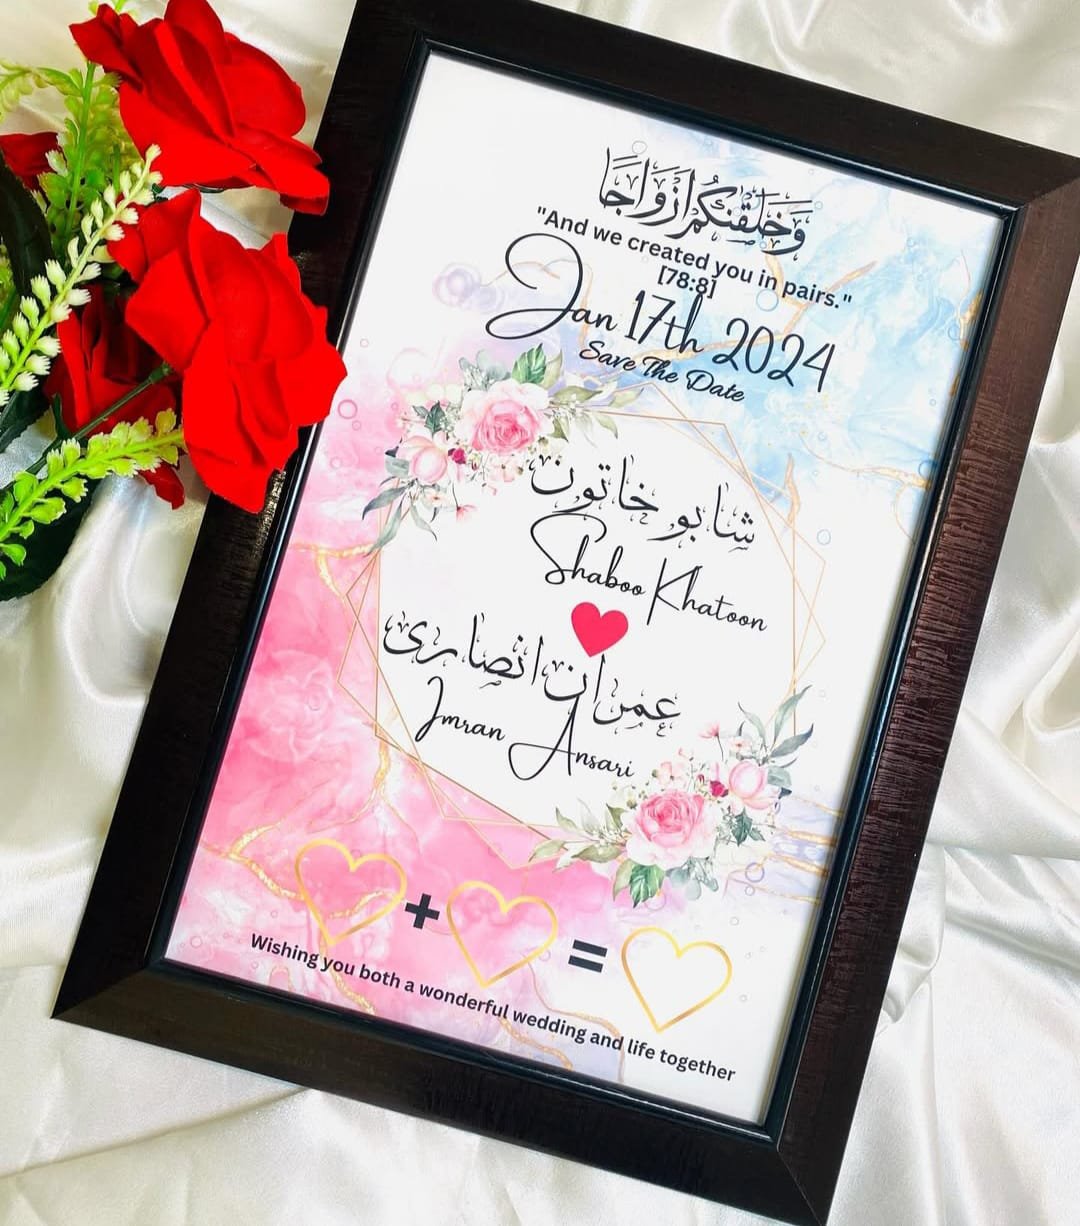 وَخَلَقْنَٰكُمْ أَزْوَاجًا
"And we created you in pairs."
[78:8]
Jan 17th 2024
Save The Date
شابو خاتون
Shaboo Khatoon
عمران انصاری
Imran Ansari
+ =
Wishing you both a wonderful wedding and life together